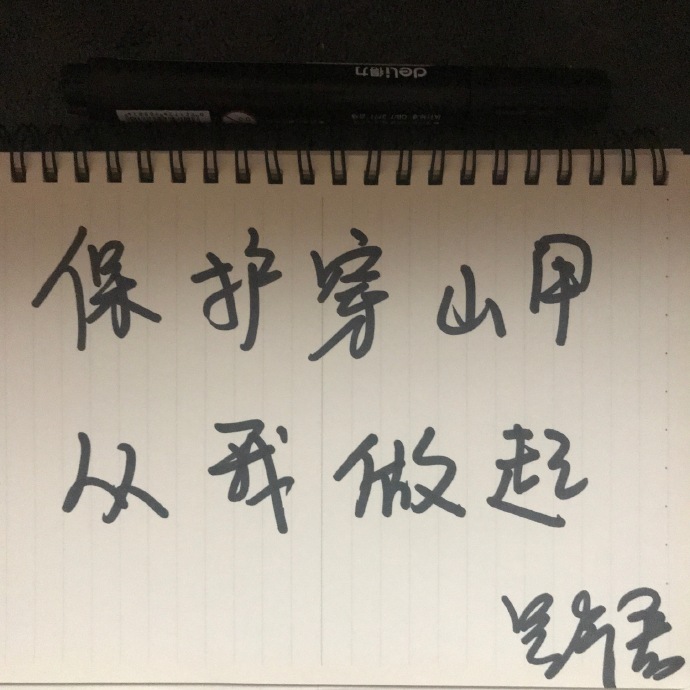 deli得力
保护穿山甲
从我做起